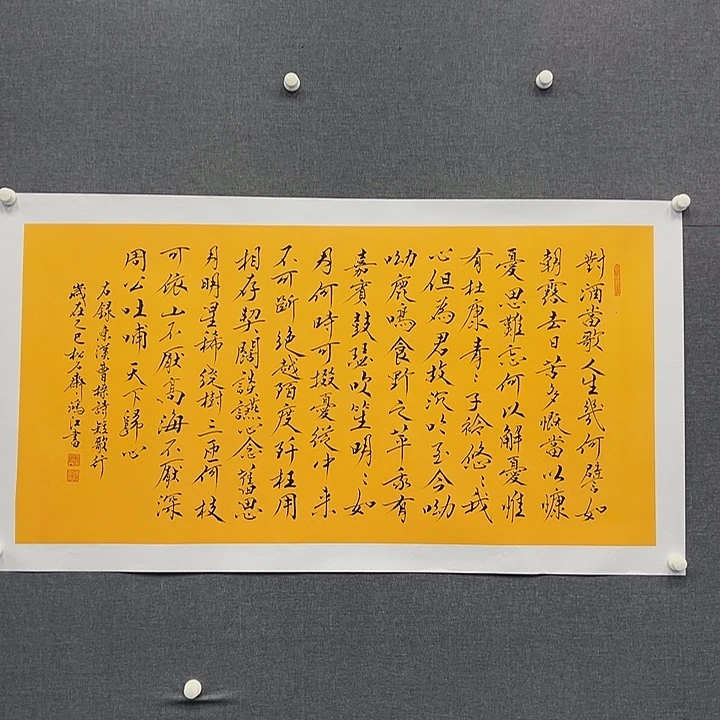 對酒當歌人生幾何譬如
朝露去日苦多慨當以慷
憂思難忘何以解憂惟
有杜康青〻子衿悠〻我
心但為君故沉吟至今呦
呦鹿鳴食野之苹我有
嘉賓鼓瑟吹笙明〻如
月何時可掇憂從中来
不可斷絕越陌度阡枉用
相存契闊談讌心念舊恩
月明星稀繞樹三匝何枝
可依山不厭高海不厭深
周公吐哺天下歸心
右錄東漢曹操詩短歌行
歲在乙巳松石齋鴻江書